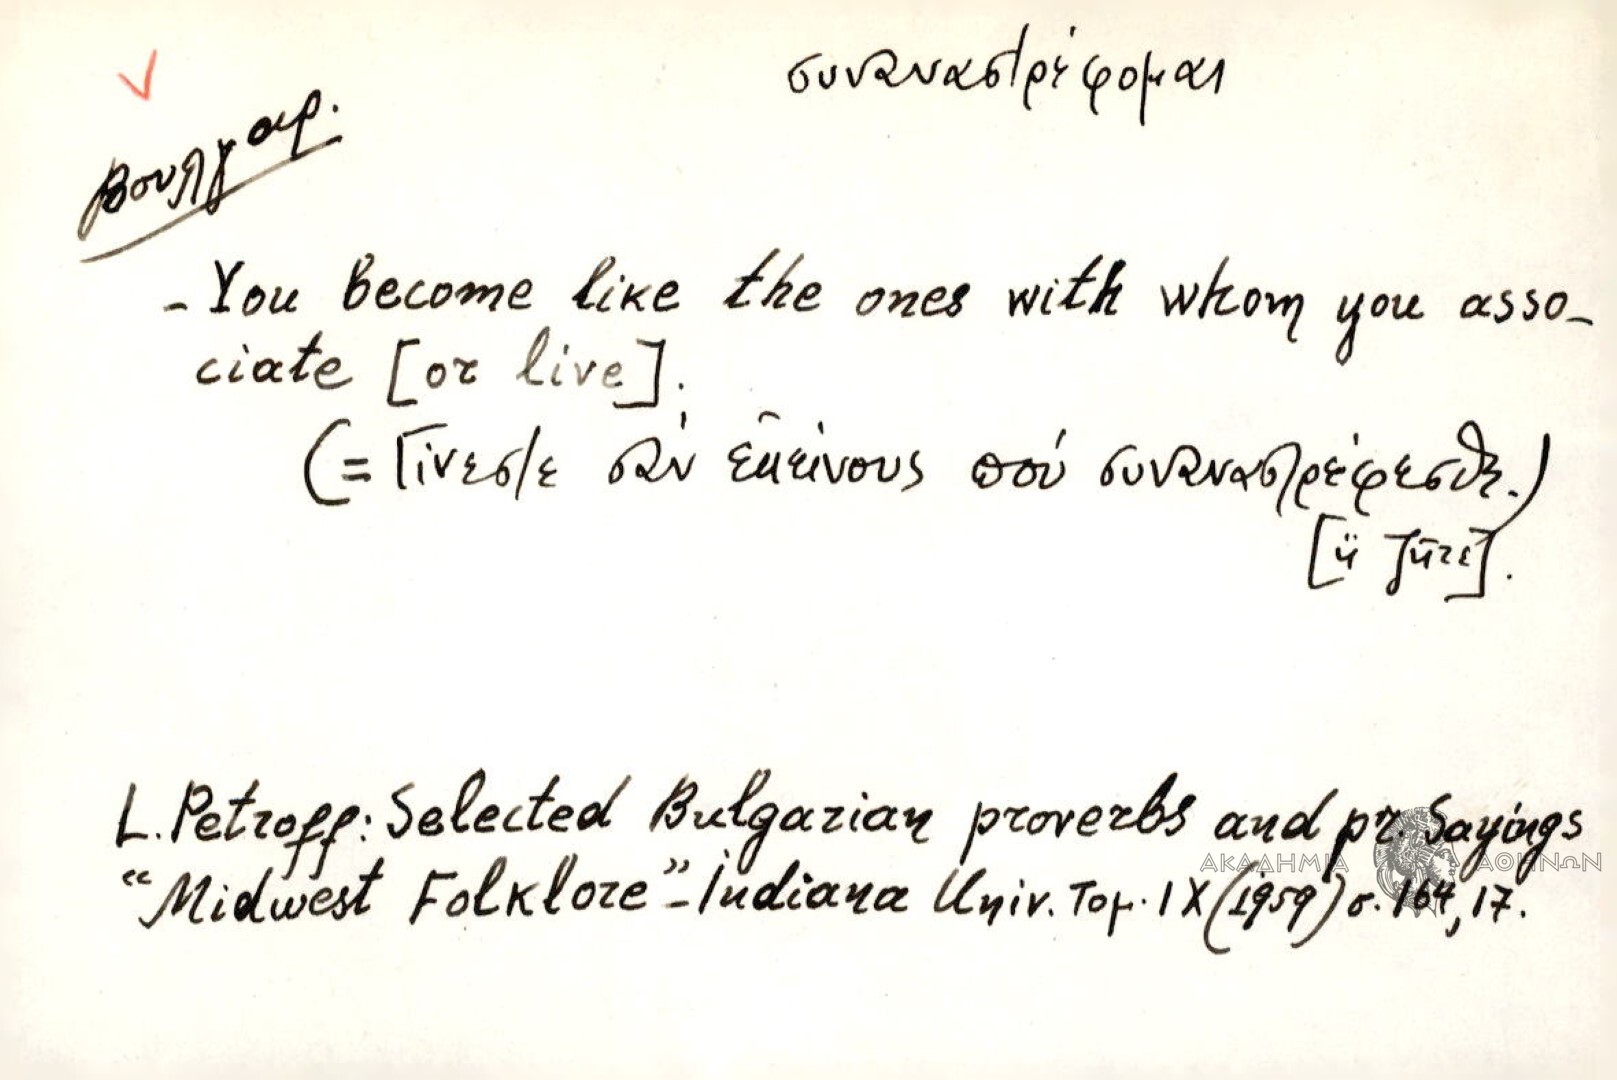 συναναστρέφομαι
Βουλγαρ.
- You become like the ones with whom you asso-
ciate [or live].
(= Γίνεστε σὰν ἐκείνους πού συναναστρέφεσθε.)
[ἤ ζῆτε].
L. Petroff: Selected Bulgarian proverbs and pr. Sayings
"Midwest Folklore" - Indiana Univ. Τομ. IX (1959) σ. 164, 17.
ΑΚΑΔΗΜΙΑ ΑΘΗΝΩΝ